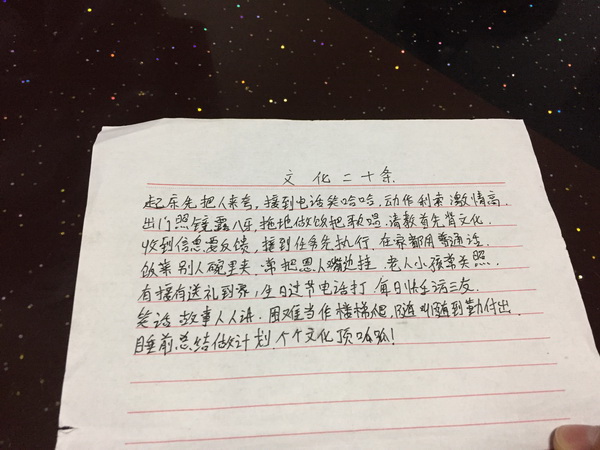 文化二十条
起床先把人来夸,接到电话笑哈哈,动作利索激情高.
出门照镜露八牙,拖地做饭把歌唱,请教首先背文化.
收到信息要反馈,接到任务先执行,在家都用普通话.
饭菜别人碗里夹,常把恩人嘴边挂,老人小孩常关照.
有接有送礼到家,生日过节电话打,每日快乐话三友.
笑话故事人人讲.困难当作楼梯爬,随叫随到勤付出.
睡前总结做计划 个个文化顶呱呱!